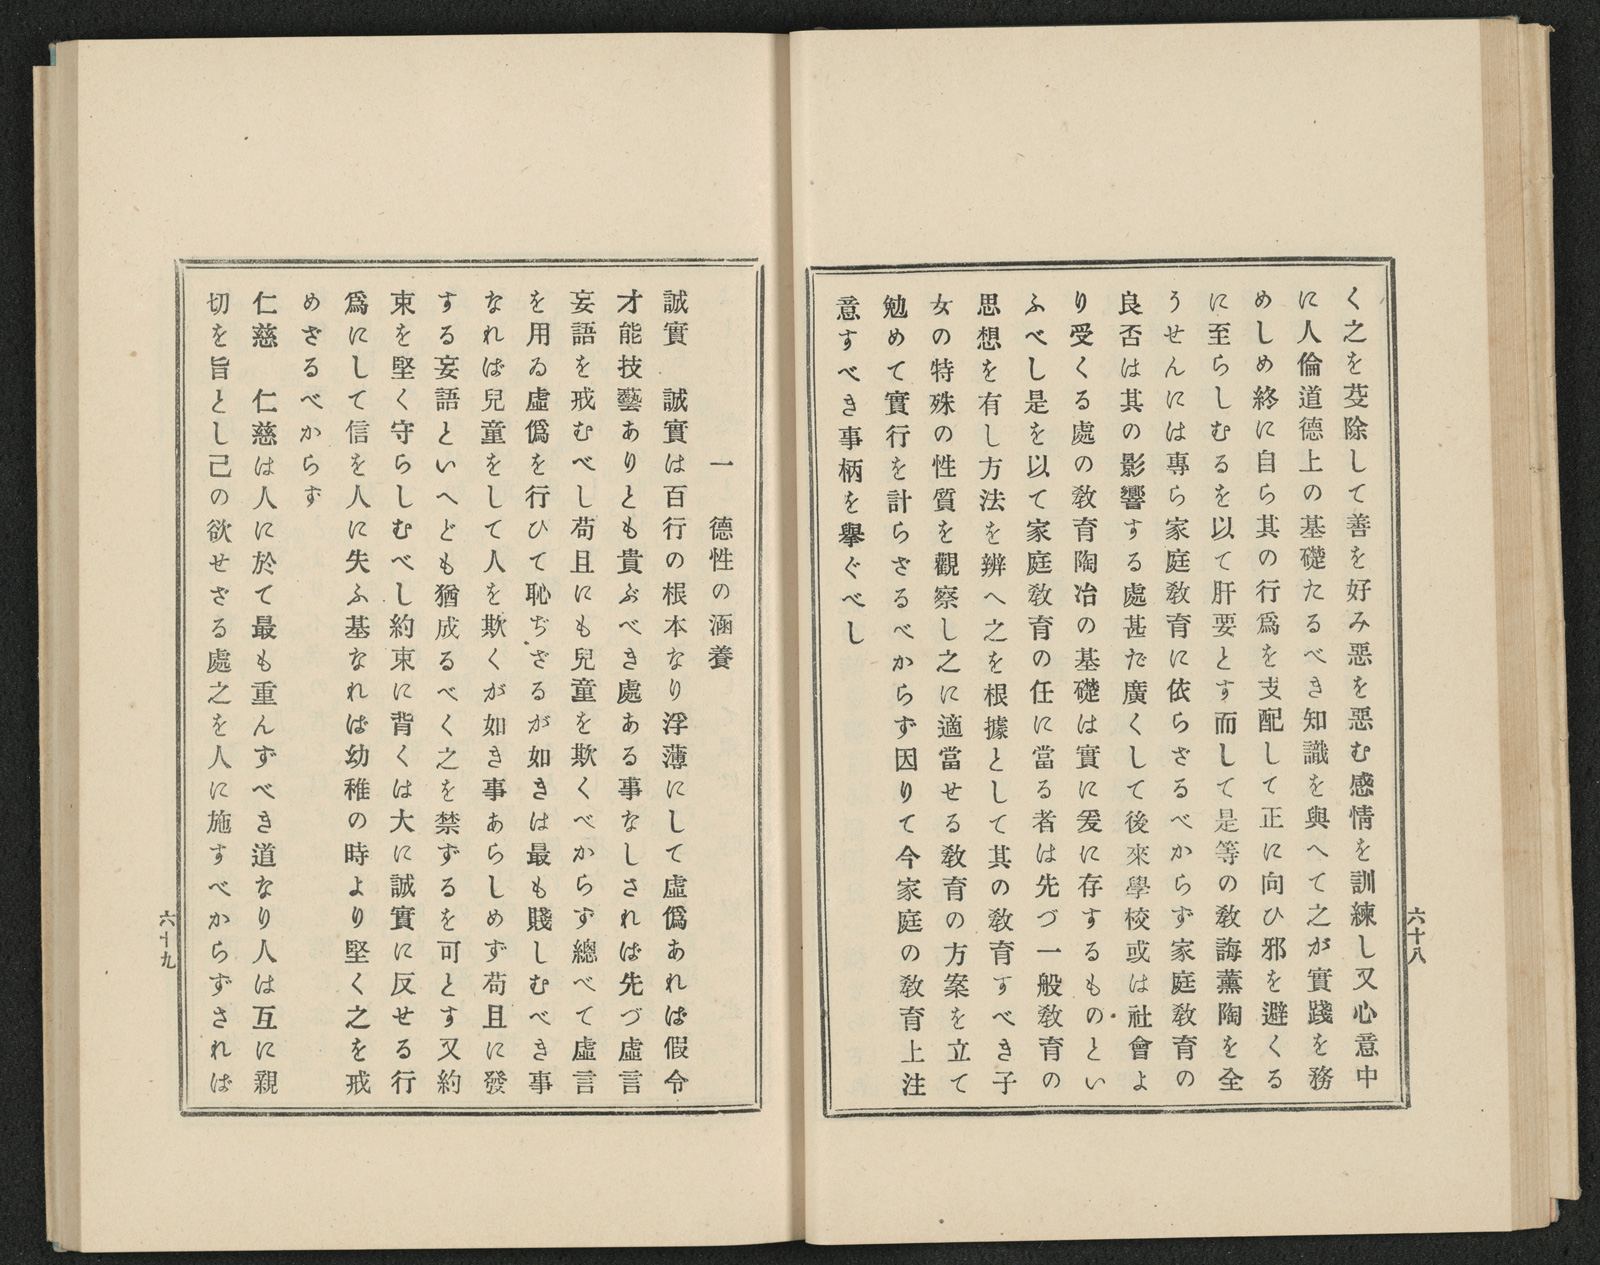 く之を芟除して善を好み惡を惡む感情を訓練し又心意中
に人倫道德上の基礎たるべき知識を與へて之が實踐を務
めしめ終に自ら其の行爲を支配して正に向ひ邪を避くる
に至らしむるを以て肝要とす而して是等の敎誨薰陶を全
うせんには專ら家庭敎育に依らざるべからず家庭敎育の
良否は其の影響する處甚だ廣くして後來學校或は社會よ
り受くる處の敎育陶冶の基礎は實に爰に存するものとい
ふべし是を以て家庭敎育の任に當る者は先づ一般敎育の
思想を有し方法を辨へ之を根據として其の敎育すべき子
女の特殊の性質を觀察し之に適當せる敎育の方案を立て
勉めて實行を計らざるべからず因りて今家庭の敎育上注
意すべき事柄を擧ぐべし
六十八
一 德性の涵養
誠實 誠實は百行の根本なり浮薄にして虛僞あれば假令
才能技藝ありとも貴ぶべき處ある事なしされば先づ虛言
妄語を戒むべし苟且にも兒童を欺くべからず總べて虛言
を用ゐ虛僞を行ひて恥ぢざるが如きは最も賤しむべき事
なれば兒童をして人を欺くが如き事あらしめず苟且に發
する妄語といへども猶成るべく之を禁ずるを可とす又約
束を堅く守らしむべし約束に背くは大に誠實に反せる行
爲にして信を人に失ふ基なれば幼稚の時より堅く之を戒
めざるべからず
仁慈 仁慈は人に於て最も重んずべき道なり人は互に親
切を旨とし己の欲せざる處之を人に施すべからずされば
六十九